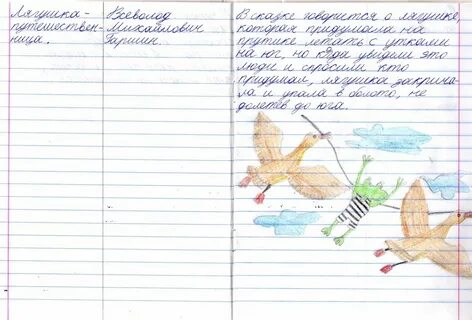 Лягушка-
путешествен-
ница.
Всеволод
Михайлович
Гаршин.
В сказке говорится о лягушке,
которая придумала на
прутике летать с утками
на юг, но когда увидели это
люди и спросили кто
придумал, лягушка закрича-
ла и упала в болото, не
долетев до юга.